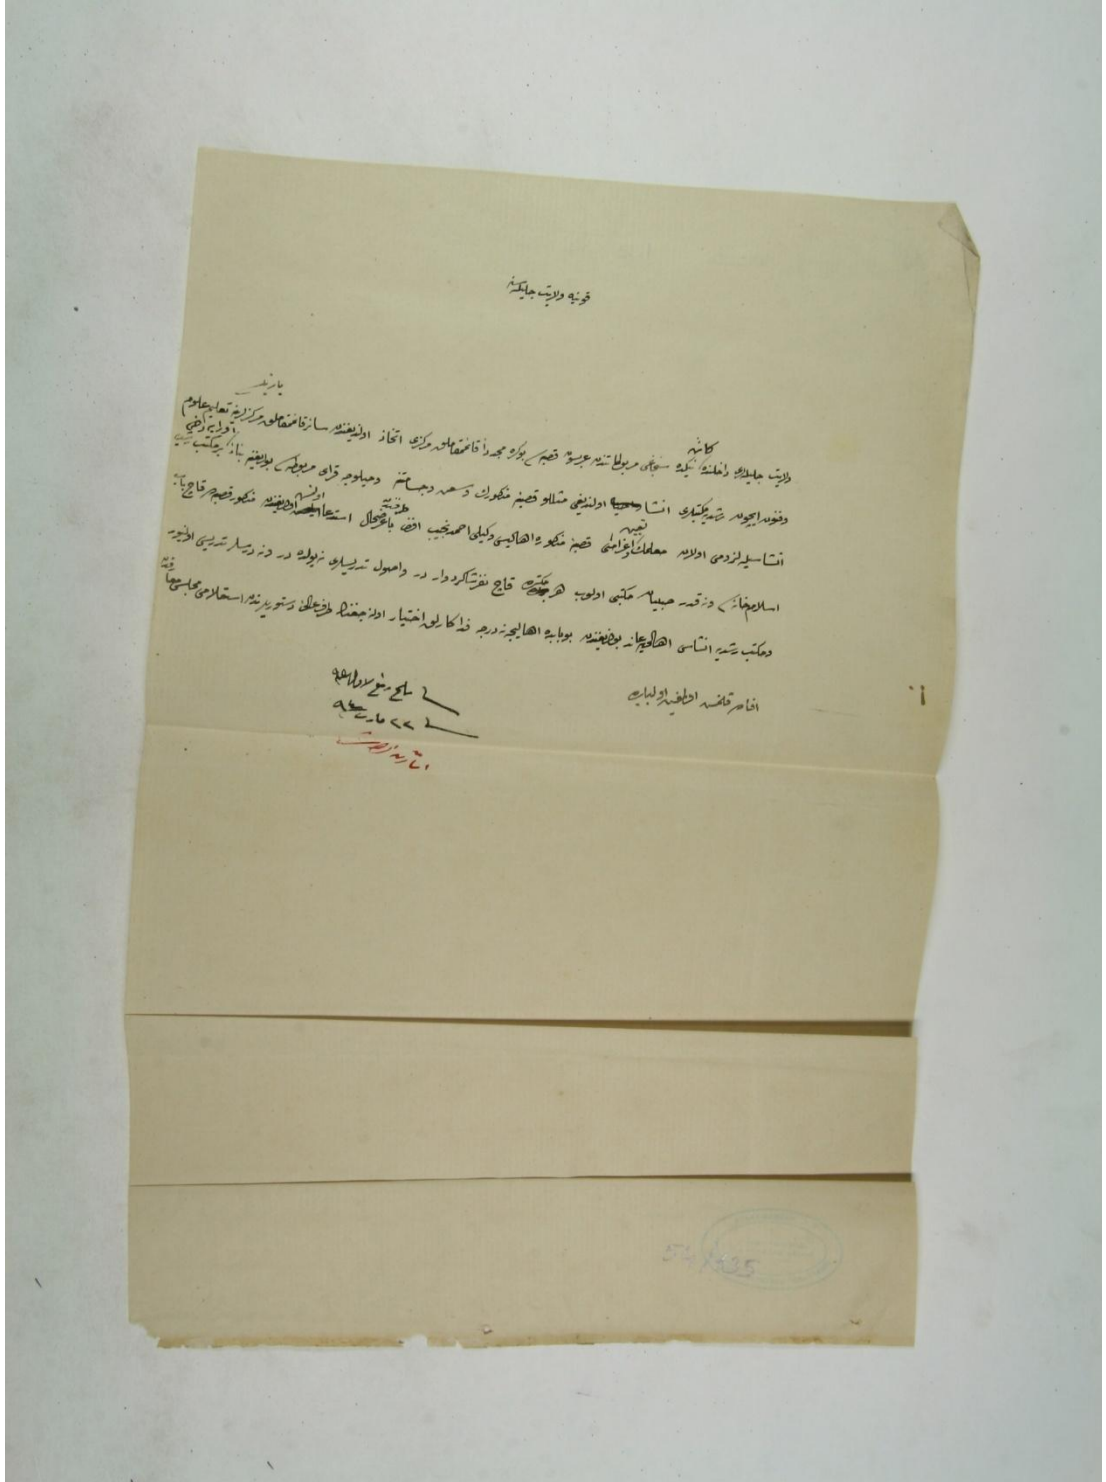 قونیه ولایت جلیله‌سنه
یازیلمشدر
ولایت جلیله‌لری داخلنده كائن نیكده سنجاغی مربوطاتندن عربسون قصبه‌سی بوكره مجدداً قائممقاملق مركزی اتخاذ اولندیغندن سائر قائممقاملق مركزلرینه تعلیم علوم
وفنون ایچون رشدیه مكتبلری انشا اولندیغی مثللو قصبه مذكوره‌نك وسعت وجسامتنه وحیلوجه قرای مربوطه‌سی بولندیغنه بناءً اورایه داخی بر مكتب رشدیه
انشاسیله لزومی اولان معلمك تعیین واعزامی قصبه مذكوره اهالیسی وكیلی احمد نجیب افندی طرفندن باعرضحال استدعا اولنمش اولدیغندن مذكور قصبه‌ده قاچ باب
اسلام خانه‌سی ونه قدر صبیان مكتبی اولوب هر مكتبده قاچ نفر شاكردوار در واصول تدریسلری نه یولده در ونه درسلر تدریس اولنیور
ومكتب رشدیه انشاسی اهالی‌یه عائد بولندیغندن بوبابده اهالیجه نه درجه فداكارلق اختیار اولنه‌جغنك طرف عالئ دستوریلرندن استعلامی مجلس معارفدن
افاده قلنمش اولمغین اولبابده
فی سلخ ربیع الاول سنه ٩٥
فی ٢٢ مارت سنه ٩٤